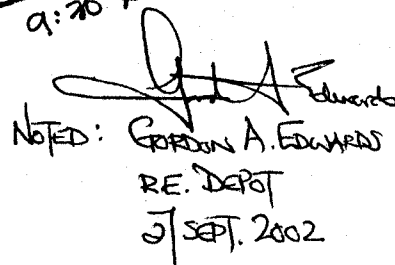 9:30
Edwards
NOTED: GORDON A. EDWARDS
R.E. DEPOT
27 SEPT. 2002